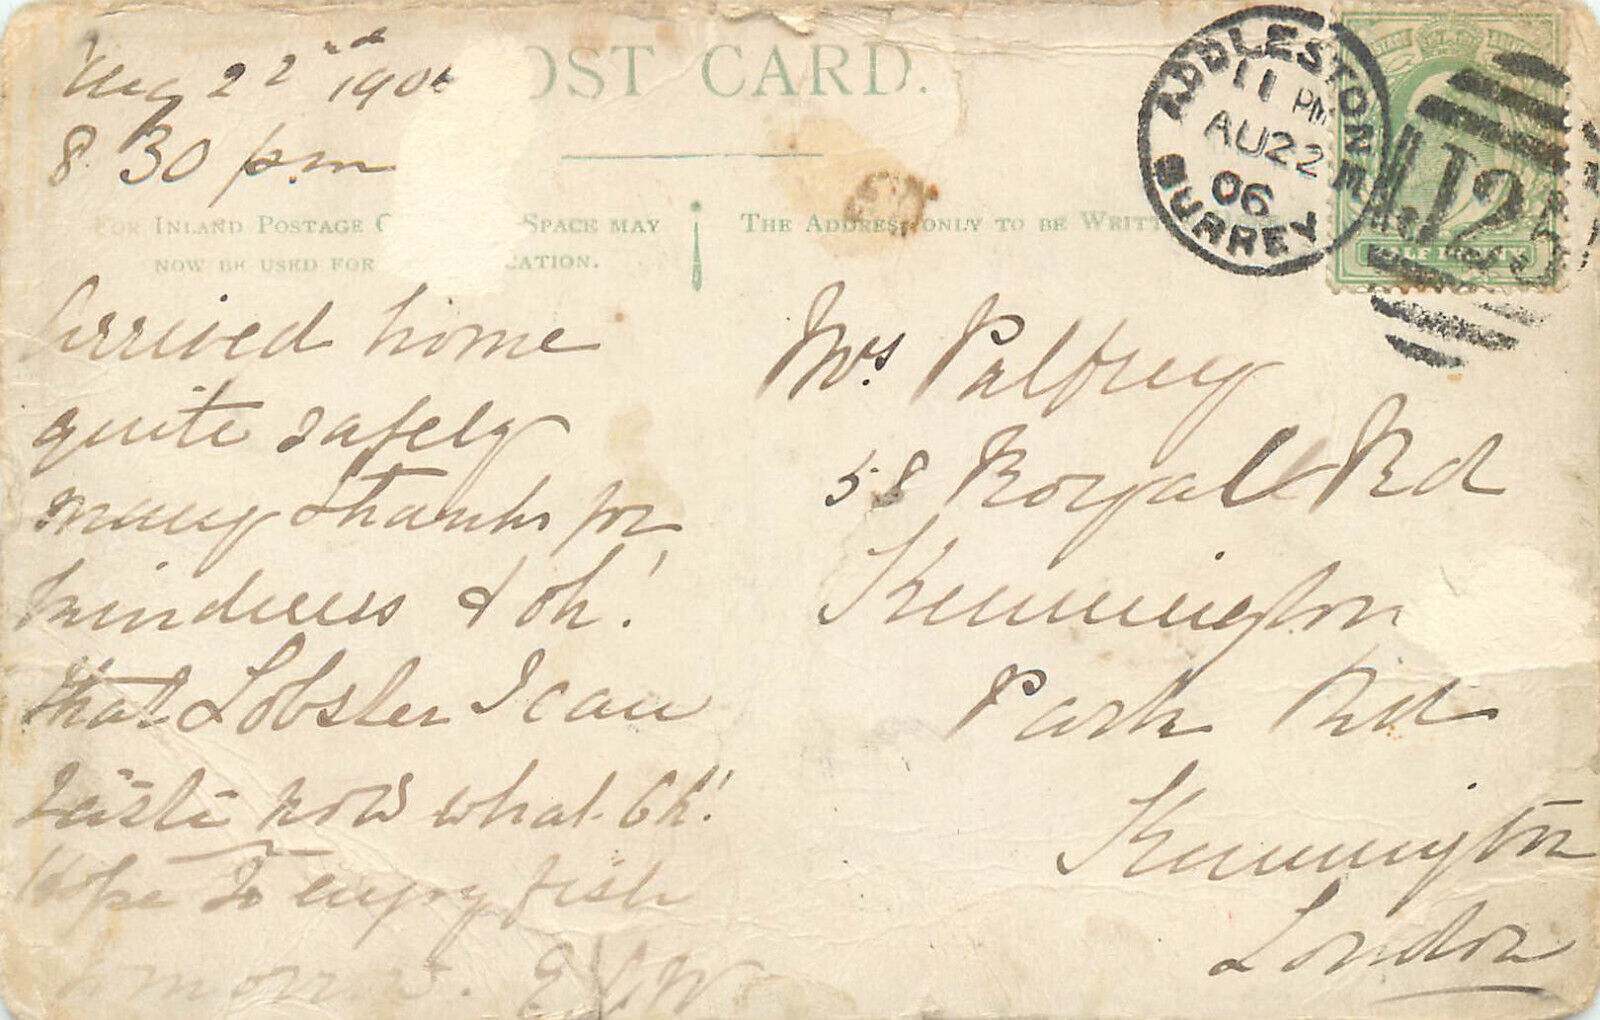 POST CARD.
Aug 22nd 1906
8.30 pm
FOR INLAND POSTAGE SPACE MAY
NOW BE USED FOR
THE ADDRESS ONLY TO BE
Arrived home
quite safely
many thanks for
kindness & oh!
that Lobster I can
taste now what. Oh!!
Hope to enjoy fish
tomorrow. W
Mrs. Palfrey
58 Royal Rd
Kennington
Park Rd
Kennington
London
ADDLESTONE
11 PM
AU 22
06
SURREY